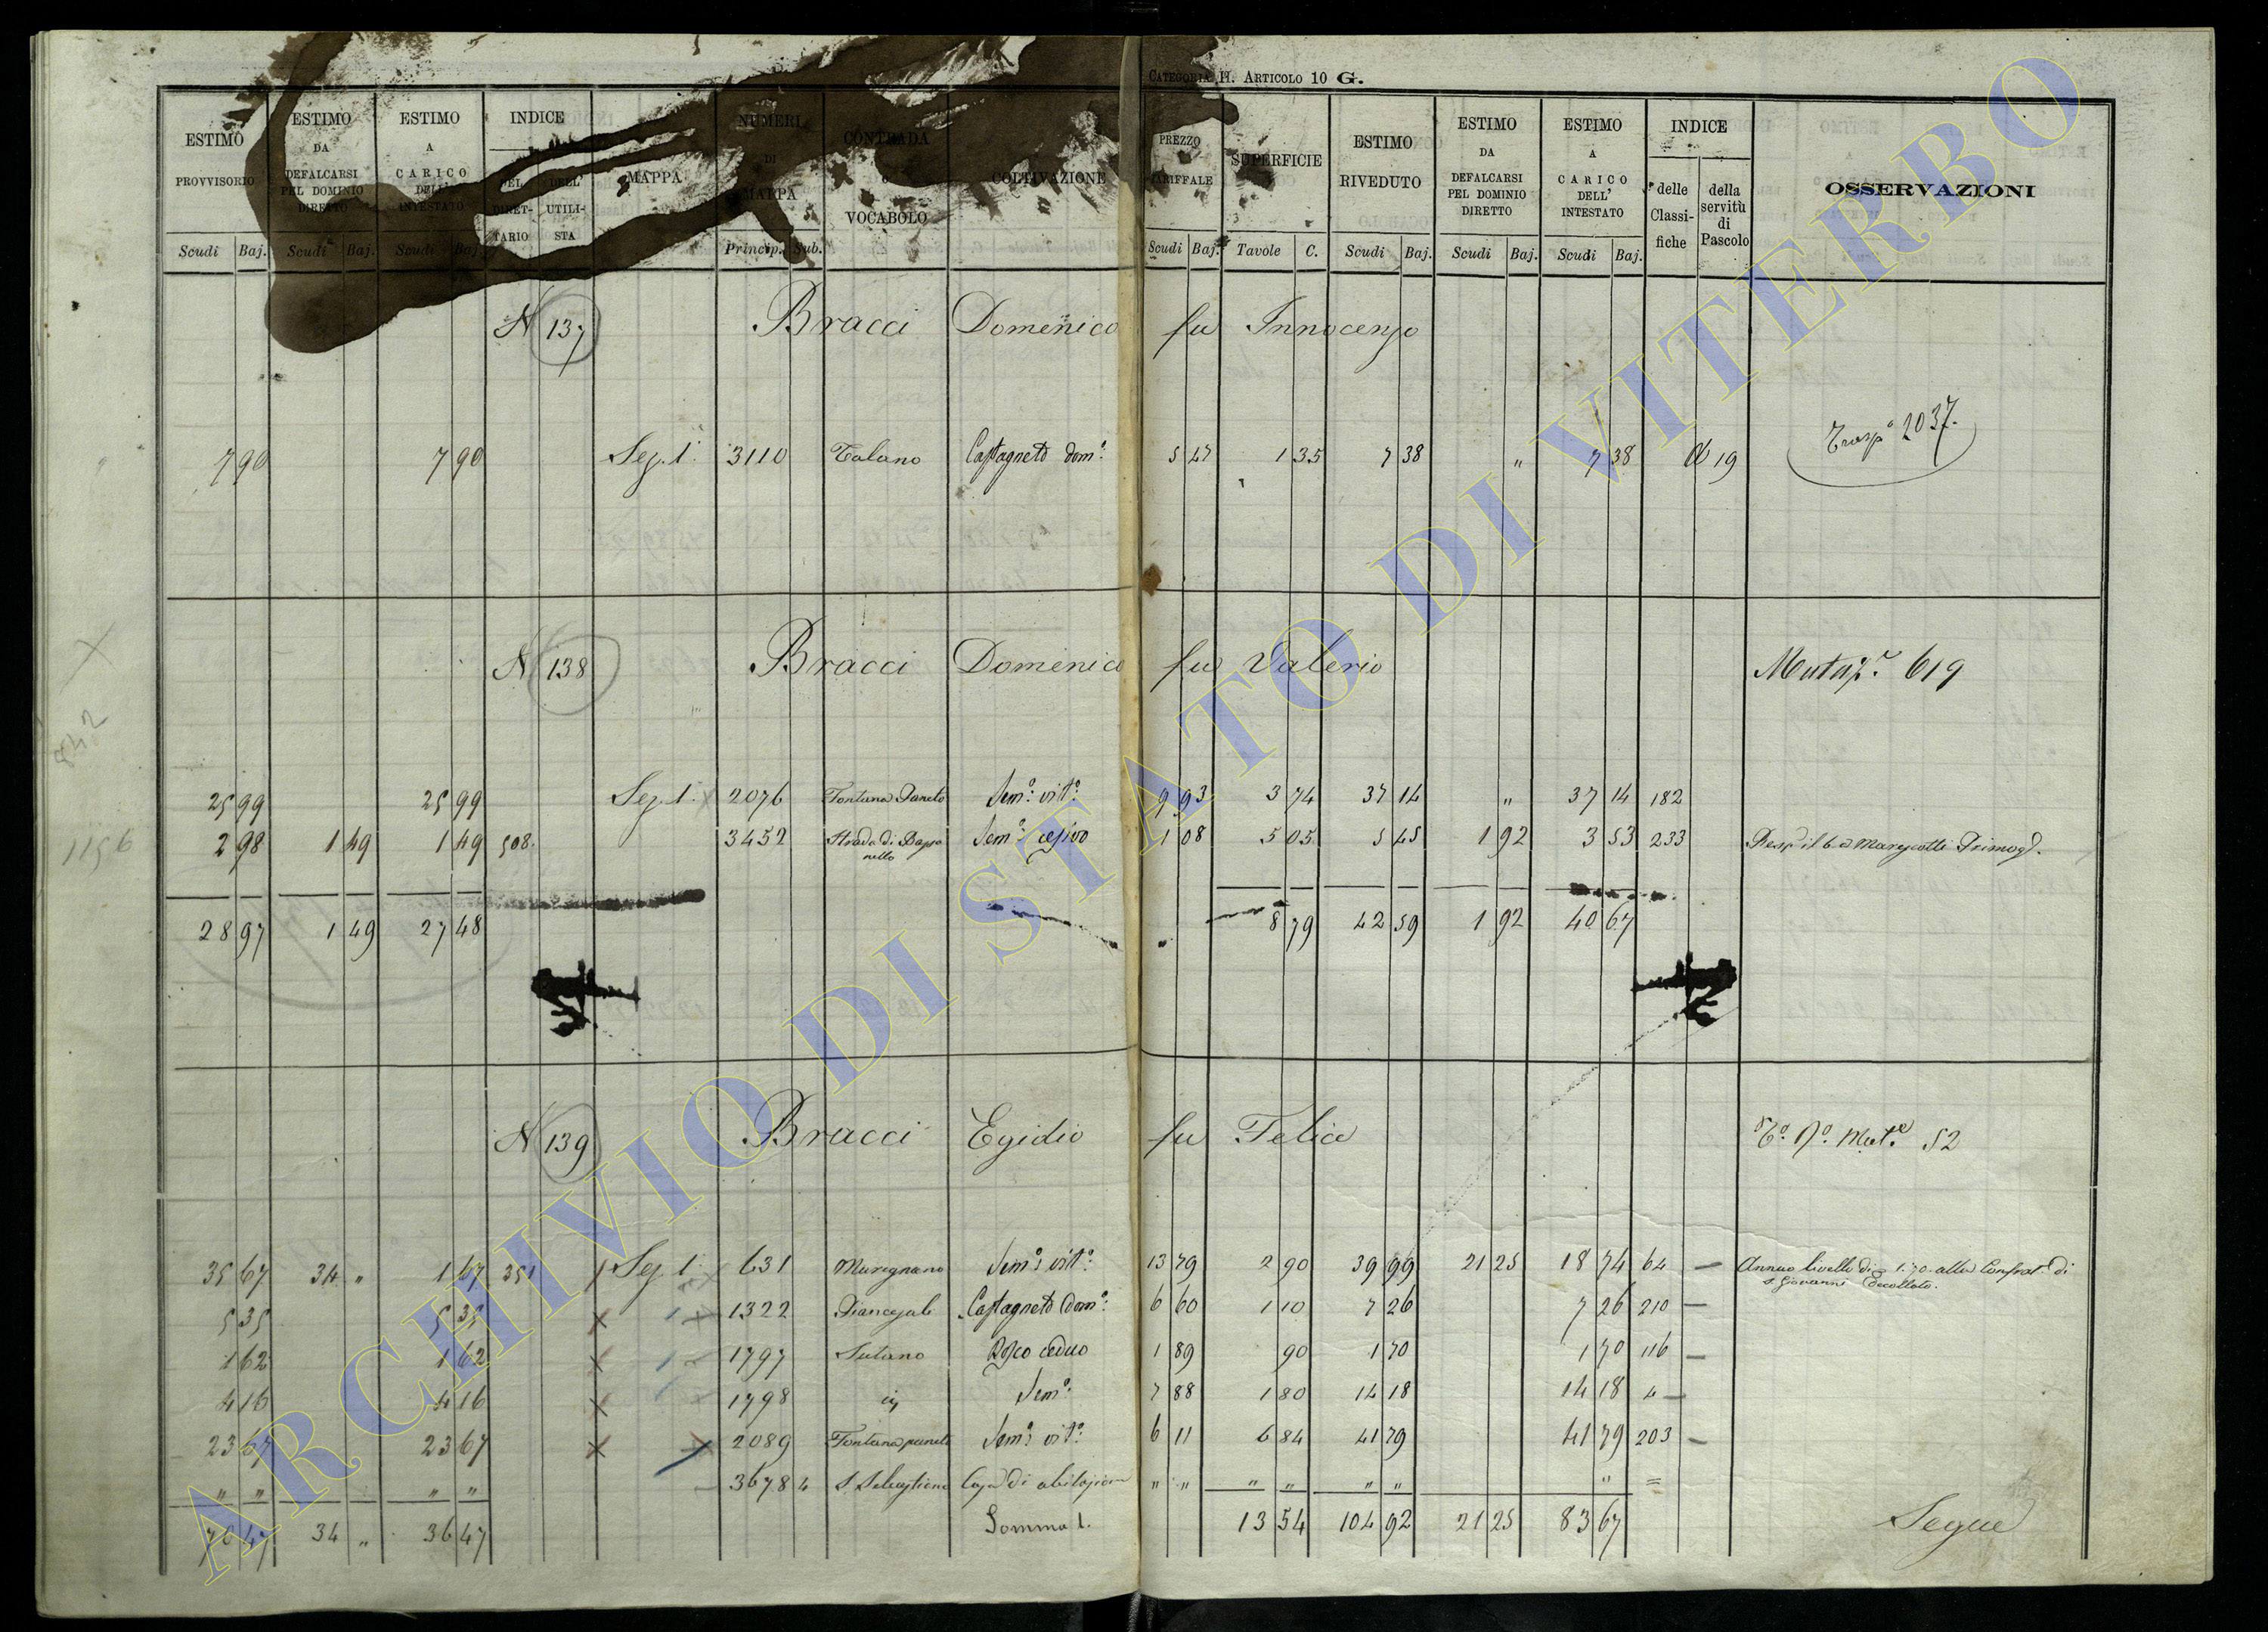 CATEGORIA H. ARTICOLO 10 G.
ESTIMO PROVVISORIO Scudi Baj.
ESTIMO DA DEFALCARSI PEL DOMINIO DIRETTO Scudi Baj.
ESTIMO A CARICO DELL' INTESTATO Scudi Baj.
INDICE DEL DIRET-TARIO DELL' UTILI-STA
MAPPA
NUMERI DI MAPPA Princip. Sub.
CONTRADA o VOCABOLO
COLTIVAZIONE
PREZZO TARIFFALE Scudi Baj.
SUPERFICIE Tavole C.
ESTIMO RIVEDUTO Scudi Baj.
ESTIMO DA DEFALCARSI PEL DOMINIO DIRETTO Scudi Baj.
ESTIMO A CARICO DELL' INTESTATO Scudi Baj.
INDICE delle Classi-fiche della servitù di Pascolo
OSSERVAZIONI
N 137 Bracci Domenico fu Innocenzo
7 90 7 90 Sez. 1. 3110 Talano Castagneto dom.º 5 47 1 35 7 38 " 7 38 19 Trasp.º 2037.
N 138 Bracci Domenico fu Valerio Mutaz.e 619
842
25 99 25 99 Sez. 1. 2076 Fontana Paneto Sem.º vit.º 9 93 3 74 37 14 " 37 14 182
1156
2 98 1 49 1 49 508. 3452 Strada di Bassa
nello Sem.º cesivo 1 08 5 05 5 45 1 92 3 53 233
28 97 1 49 27 48 8 79 42 59 1 92 40 67
N 139 Bracci Egidio fu Felice 52
35 67 34 " 1 67 351 Sez. 1. 631 Muregnano Sem.º vit.º 13 79 2 90 39 99 21 25 18 74 64 — Annuo livello di 1:70 alla Confrat. di
S. Giovanni Decollato.
5 35 5 35 1322 Castagneto dom.º 6 60 1 10 7 26 7 26 210 —
1 62 1 62 1797 Sutano Bosco ceduo 1 89 90 1 70 1 70 116 —
4 16 4 16 1798 Sem.º 7 88 1 80 14 18 14 18 4 —
23 67 23 67 2089 Fontana paneto Sem.º vit.º 6 11 6 84 41 79 41 79 203 —
" " " " 3678 4 S. Sebastiano Casa di abitazione " " " " " " " =
70 47 34 " 36 47 Somma 1. 13 54 104 92 21 25 83 67 Segue
ARCHIVIO DI STATO DI VITERBO